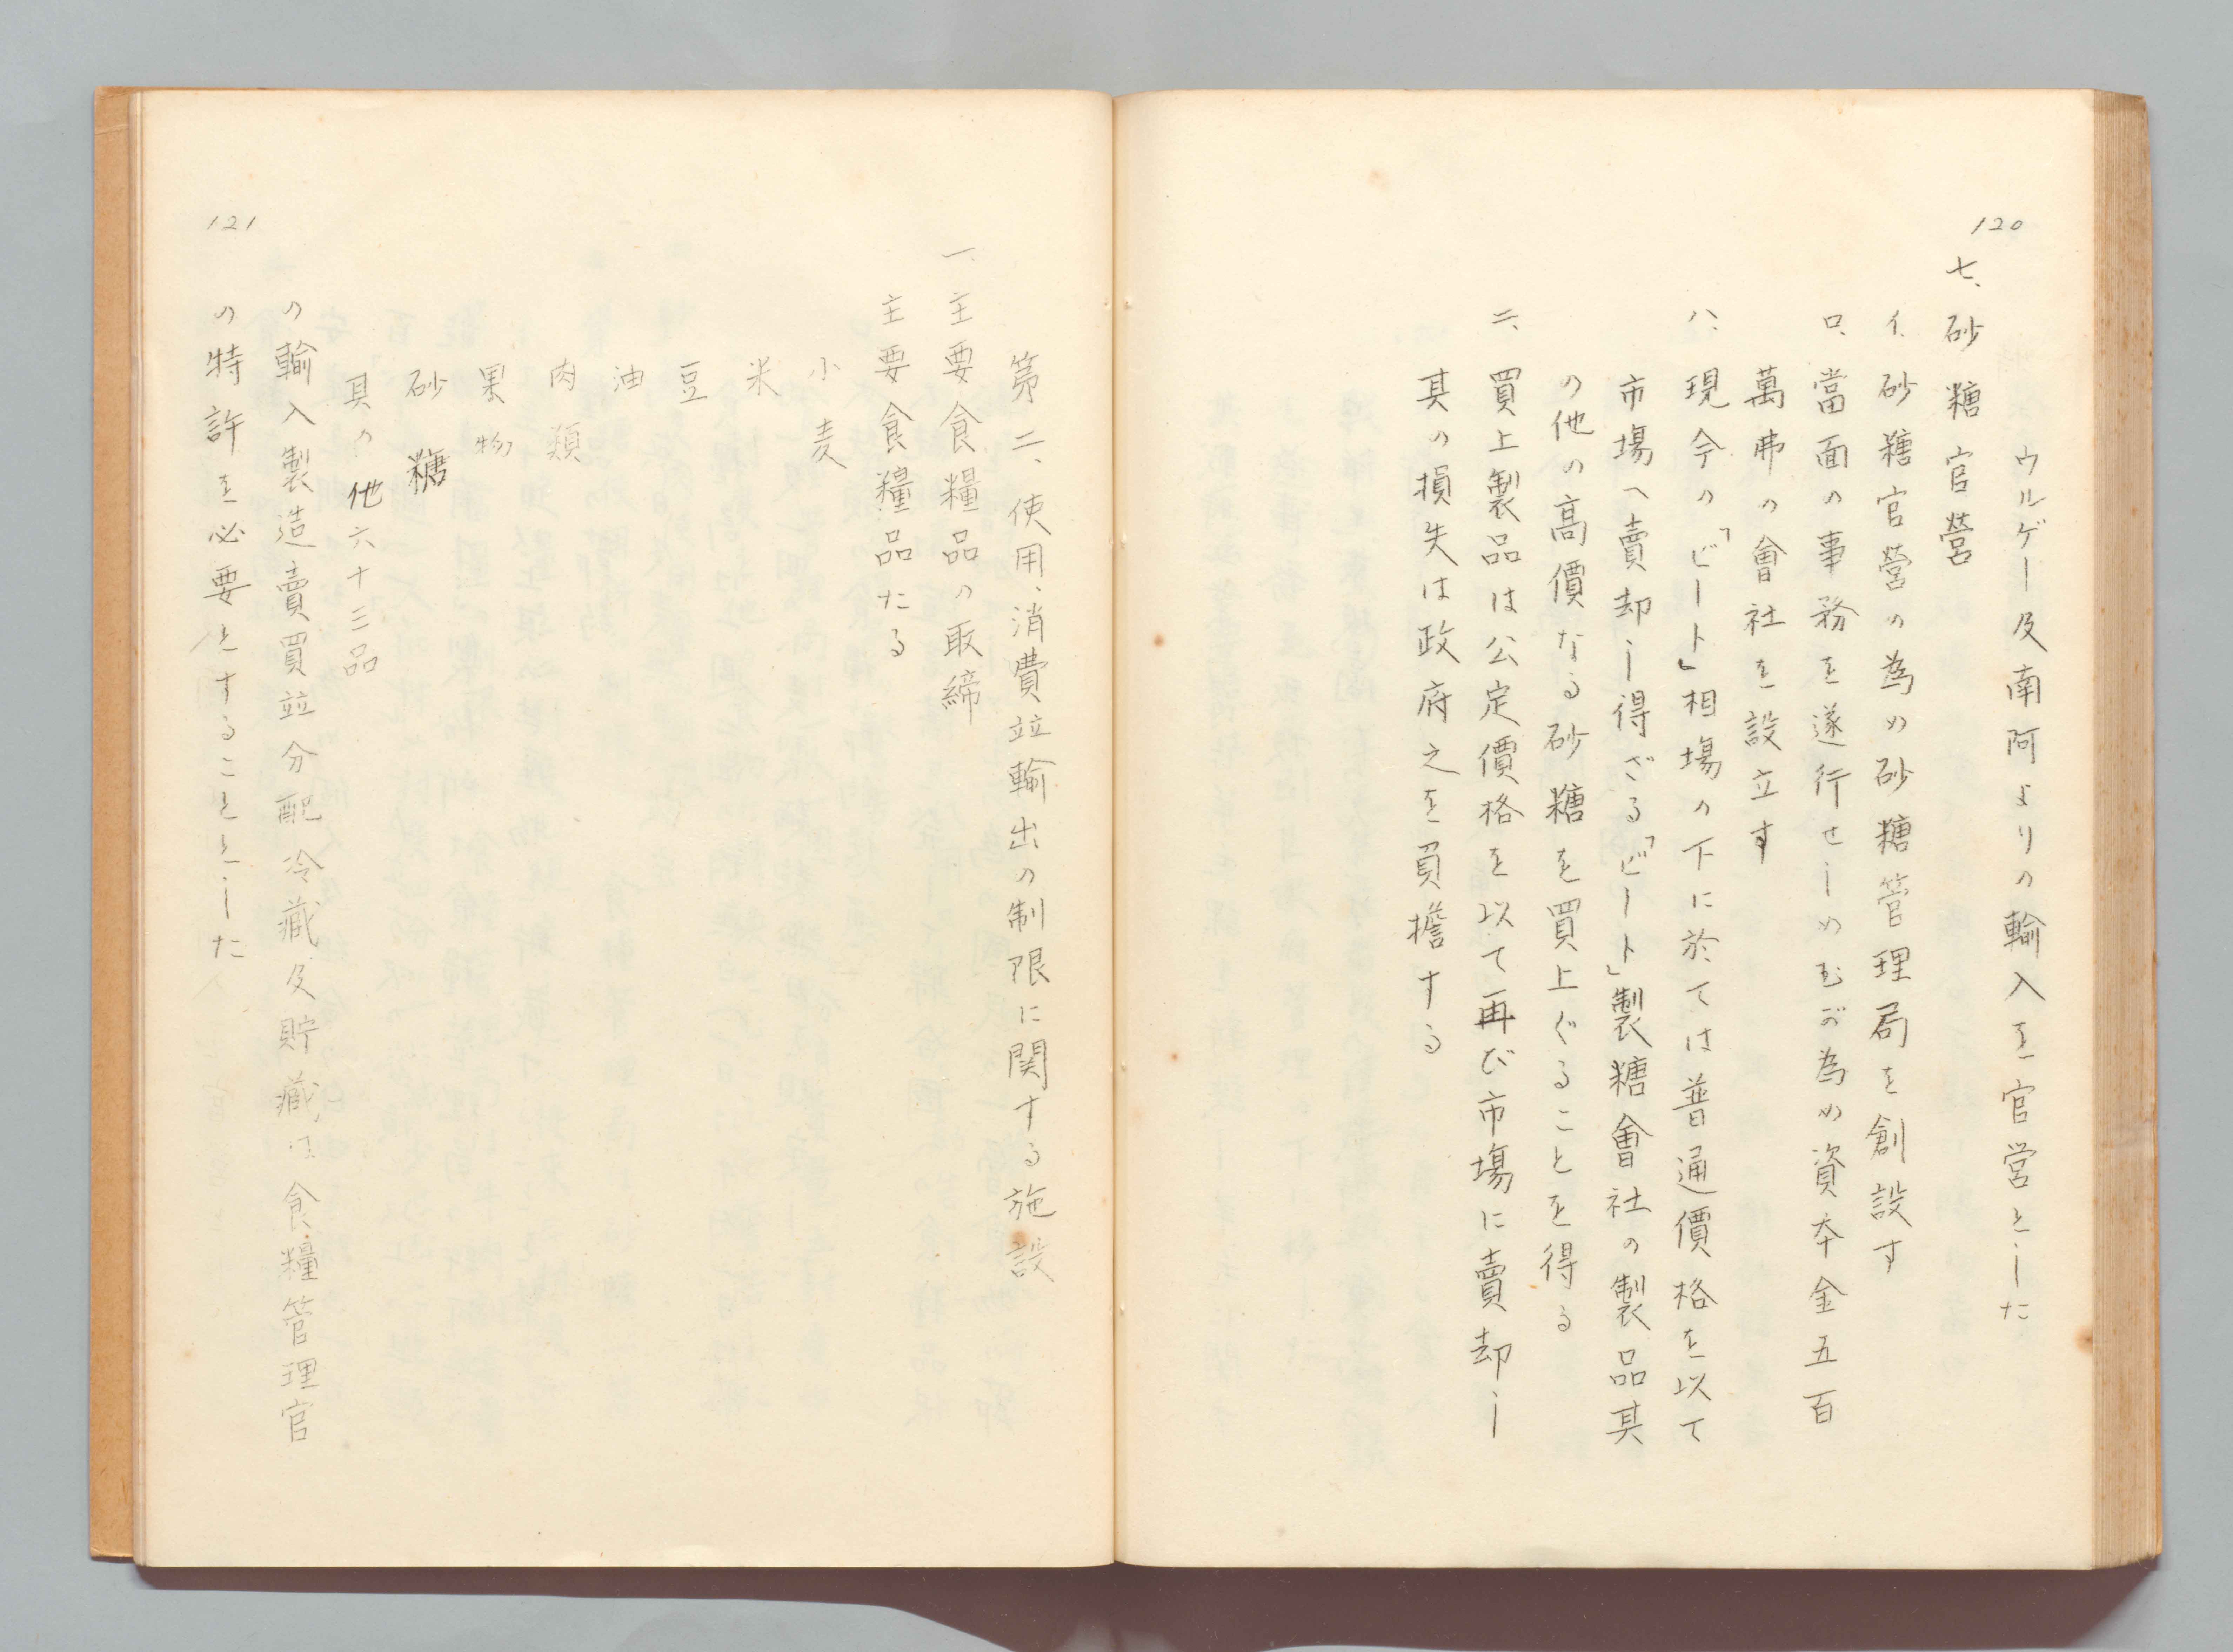 120
ウルゲー及南阿よりの輸入を官営とした
七、砂糖官營
イ、砂糖官營の為め砂糖管理局を創設す
ロ、當面の事務を遂行せしめむが為め資本金五百
萬弗の會社を設立す
ハ、現今の「ビート」相場の下に於ては普通價格を以て
市場へ賣却し得ざる「ビート」製糖會社の製品其
の他の高價なる砂糖を買上ぐることを得る
ニ、買上製品は公定價格を以て再び市場に賣却し
其の損失は政府之を負擔する
121
第二、使用、消費並輸出の制限に関する施設
一、主要食糧品の取締
主要食糧品たる
小麦
米
豆
油
肉類
果物
砂糖
其の他六十三品
の輸入製造賣買並分配冷藏及貯藏は食糧管理官
の特許を必要とすることとした